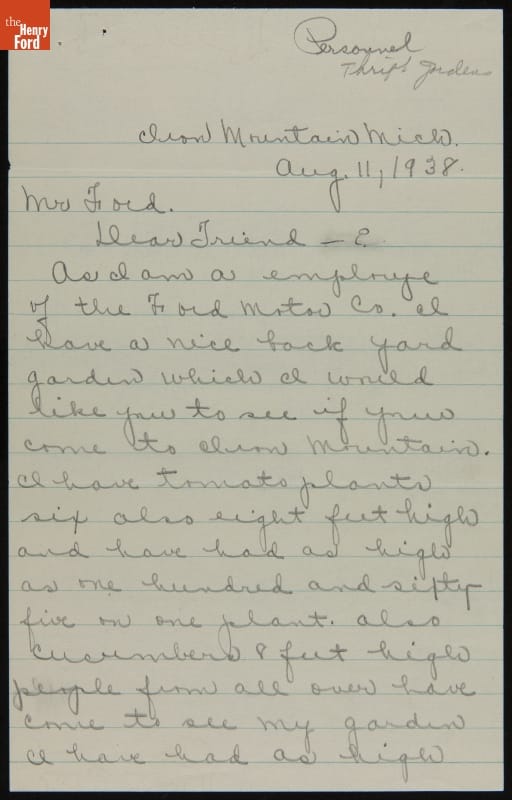 the
Henry
Ford
Personnel
Thrift Gardens
Iron Mountain Mich.
Aug. 11, 1938.
Mr Ford.
Dear Friend –
As I am a employe
of the Ford Motor Co. I
have a nice back yard
garden which I would
like you to see if you
come to Iron Mountain.
I have tomato plants
six also eight feet high
and have had as high
as one hundred and sifty
five on one plant. also
Cucumbers 8 feet high
people from all over have
come to see my garden
I have had as high